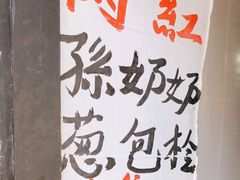 网紅
孫奶奶
葱包桧